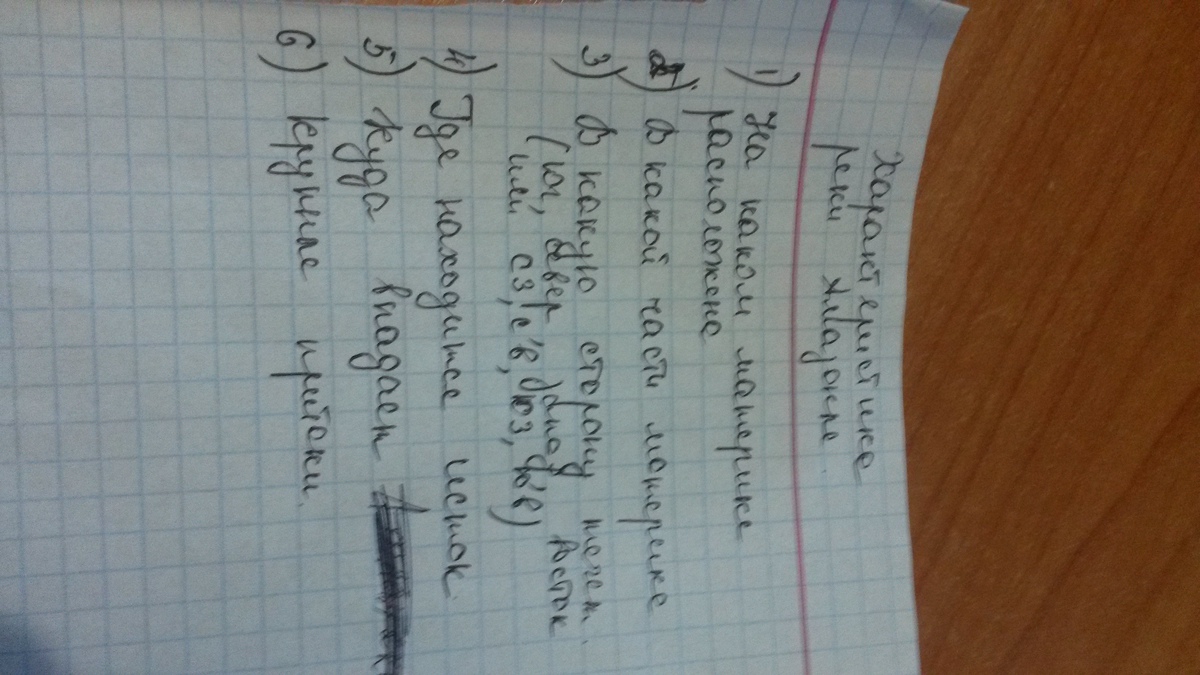 Характеристика
реки Амазонке.
1) На каком материке
расположена
2) В какой части материке
3) В какую сторону течет.
(юг, север, запад, восток
или сз, с'в, юз, ю'в)
4) Где находится исток.
5) Куда впадает
6) крупные притоки.